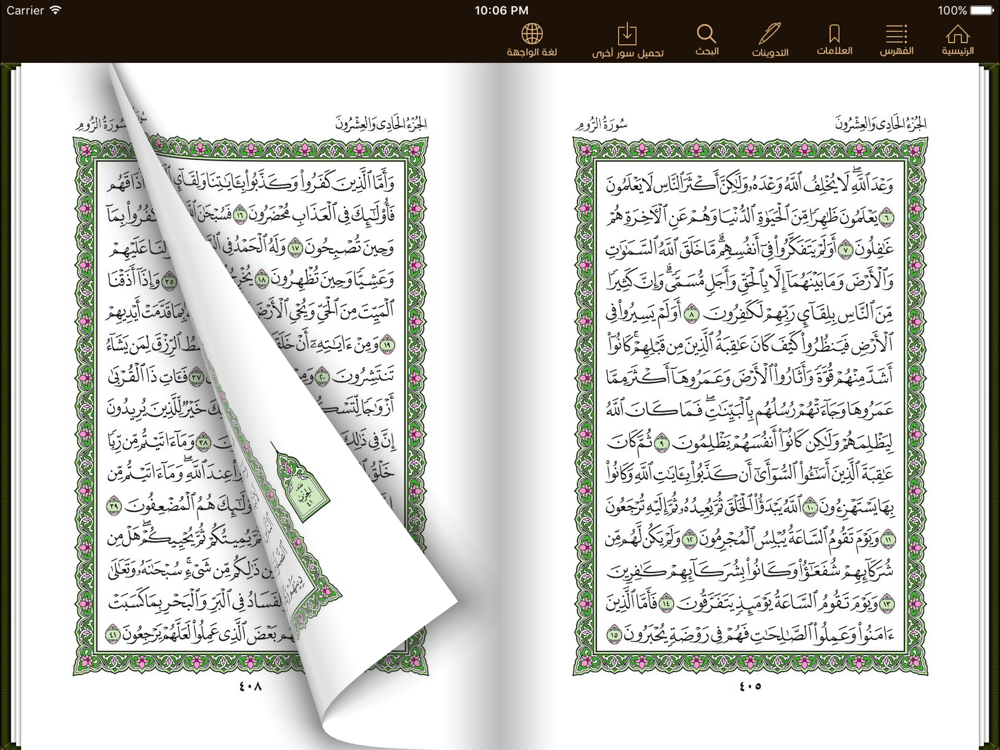 Carrier 10:06 PM 100%
الرئيسية الفهرس العلامات التدوينات البحث تحميل سور أخرى لغة الواجهة
الجُزْءُ الحَادِي وَالعِشْرُونَ سُورَةُ الرُّومِ
وَعْدَ ٱللَّهِۖ لَا يُخْلِفُ ٱللَّهُ وَعْدَهُۥ وَلَٰكِنَّ أَكْثَرَ ٱلنَّاسِ لَا يَعْلَمُونَ
٦ يَعْلَمُونَ ظَٰهِرًا مِّنَ ٱلْحَيَوٰةِ ٱلدُّنْيَا وَهُمْ عَنِ ٱلْءَاخِرَةِ هُمْ
غَٰفِلُونَ ٧ أَوَلَمْ يَتَفَكَّرُوا۟ فِىٓ أَنفُسِهِمۗ مَّا خَلَقَ ٱللَّهُ ٱلسَّمَٰوَٰتِ
وَٱلْأَرْضَ وَمَا بَيْنَهُمَآ إِلَّا بِٱلْحَقِّ وَأَجَلٍ مُّسَمًّىۗ وَإِنَّ كَثِيرًا
مِّنَ ٱلنَّاسِ بِلِقَآئِ رَبِّهِمْ لَكَٰفِرُونَ ٨ أَوَلَمْ يَسِيرُوا۟ فِى
ٱلْأَرْضِ فَيَنظُرُوا۟ كَيْفَ كَانَ عَٰقِبَةُ ٱلَّذِينَ مِن قَبْلِهِمْۚ كَانُوٓا۟
أَشَدَّ مِنْهُمْ قُوَّةً وَأَثَارُوا۟ ٱلْأَرْضَ وَعَمَرُوهَآ أَكْثَرَ مِمَّا
عَمَرُوهَا وَجَآءَتْهُمْ رُسُلُهُم بِٱلْبَيِّنَٰتِۖ فَمَا كَانَ ٱللَّهُ
لِيَظْلِمَهُمْ وَلَٰكِن كَانُوٓا۟ أَنفُسَهُمْ يَظْلِمُونَ ٩ ثُمَّ كَانَ
عَٰقِبَةَ ٱلَّذِينَ أَسَٰٓـُٔوا۟ ٱلسُّوٓأَىٰٓ أَن كَذَّبُوا۟ بِـَٔايَٰتِ ٱللَّهِ وَكَانُوا۟
بِهَا يَسْتَهْزِءُونَ ١٠ ٱللَّهُ يَبْدَؤُا۟ ٱلْخَلْقَ ثُمَّ يُعِيدُهُۥ ثُمَّ إِلَيْهِ تُرْجَعُونَ
١١ وَيَوْمَ تَقُومُ ٱلسَّاعَةُ يُبْلِسُ ٱلْمُجْرِمُونَ ١٢ وَلَمْ يَكُن لَّهُم مِّن
شُرَكَآئِهِمْ شُفَعَٰٓؤُا۟ وَكَانُوا۟ بِشُرَكَآئِهِمْ كَٰفِرِينَ
١٣ وَيَوْمَ تَقُومُ ٱلسَّاعَةُ يَوْمَئِذٍ يَتَفَرَّقُونَ ١٤ فَأَمَّا ٱلَّذِينَ
ءَامَنُوا۟ وَعَمِلُوا۟ ٱلصَّٰلِحَٰتِ فَهُمْ فِى رَوْضَةٍ يُحْبَرُونَ ١٥
٤٠٥
الجُزْءُ الحَادِي وَالعِشْرُونَ سُورَةُ الرُّومِ
وَأَمَّا ٱلَّذِينَ كَفَرُوا۟ وَكَذَّبُوا۟ بِـَٔايَٰتِنَا وَلِقَآئِ أَذَاقَهُم
فَأُو۟لَٰٓئِكَ فِى ٱلْعَذَابِ مُحْضَرُونَ ١٦ فَسُبْحَٰنَ بِمَآ
وَحِينَ تُصْبِحُونَ ١٧ وَلَهُ ٱلْحَمْدُ فِى عَلَيْهِمْ
وَعَشِيًّا وَحِينَ تُظْهِرُونَ ١٨ ٣٥ وَإِذَآ أَذَقْنَا
ٱلْمَيِّتَ مِنَ ٱلْحَىِّ وَيُحْىِ ٱلْأَرْضَ بِمَا قَدَّمَتْ أَيْدِيهِمْ
١٩ وَمِنْ ءَايَٰتِهِۦٓ أَنْ ٱلرِّزْقَ لِمَن يَشَآءُ
تَنتَشِرُونَ ٢٠ ٣٧ فَـَٔاتِ ذَا ٱلْقُرْبَىٰ
أَزْوَٰجًا خَيْرٌ لِّلَّذِينَ يُرِيدُونَ
إِنَّ فِى ذَٰلِكَ ٣٨ وَمَآ ءَاتَيْتُم مِّن رِّبًا
خَلْقُ عِندَ ٱللَّهِۖ وَمَآ ءَاتَيْتُم مِّن
هُمُ ٱلْمُضْعِفُونَ ٣٩
يُمِيتُكُمْ ثُمَّ يُحْيِيكُمْۖ هَلْ مِن
ذَٰلِكُم مِّن شَىْءٍۚ سُبْحَٰنَهُۥ وَتَعَٰلَىٰ
فِى ٱلْبَرِّ وَٱلْبَحْرِ بِمَا كَسَبَتْ
بَعْضَ ٱلَّذِى عَمِلُوا۟ لَعَلَّهُمْ يَرْجِعُونَ ٤١
٤٠٨